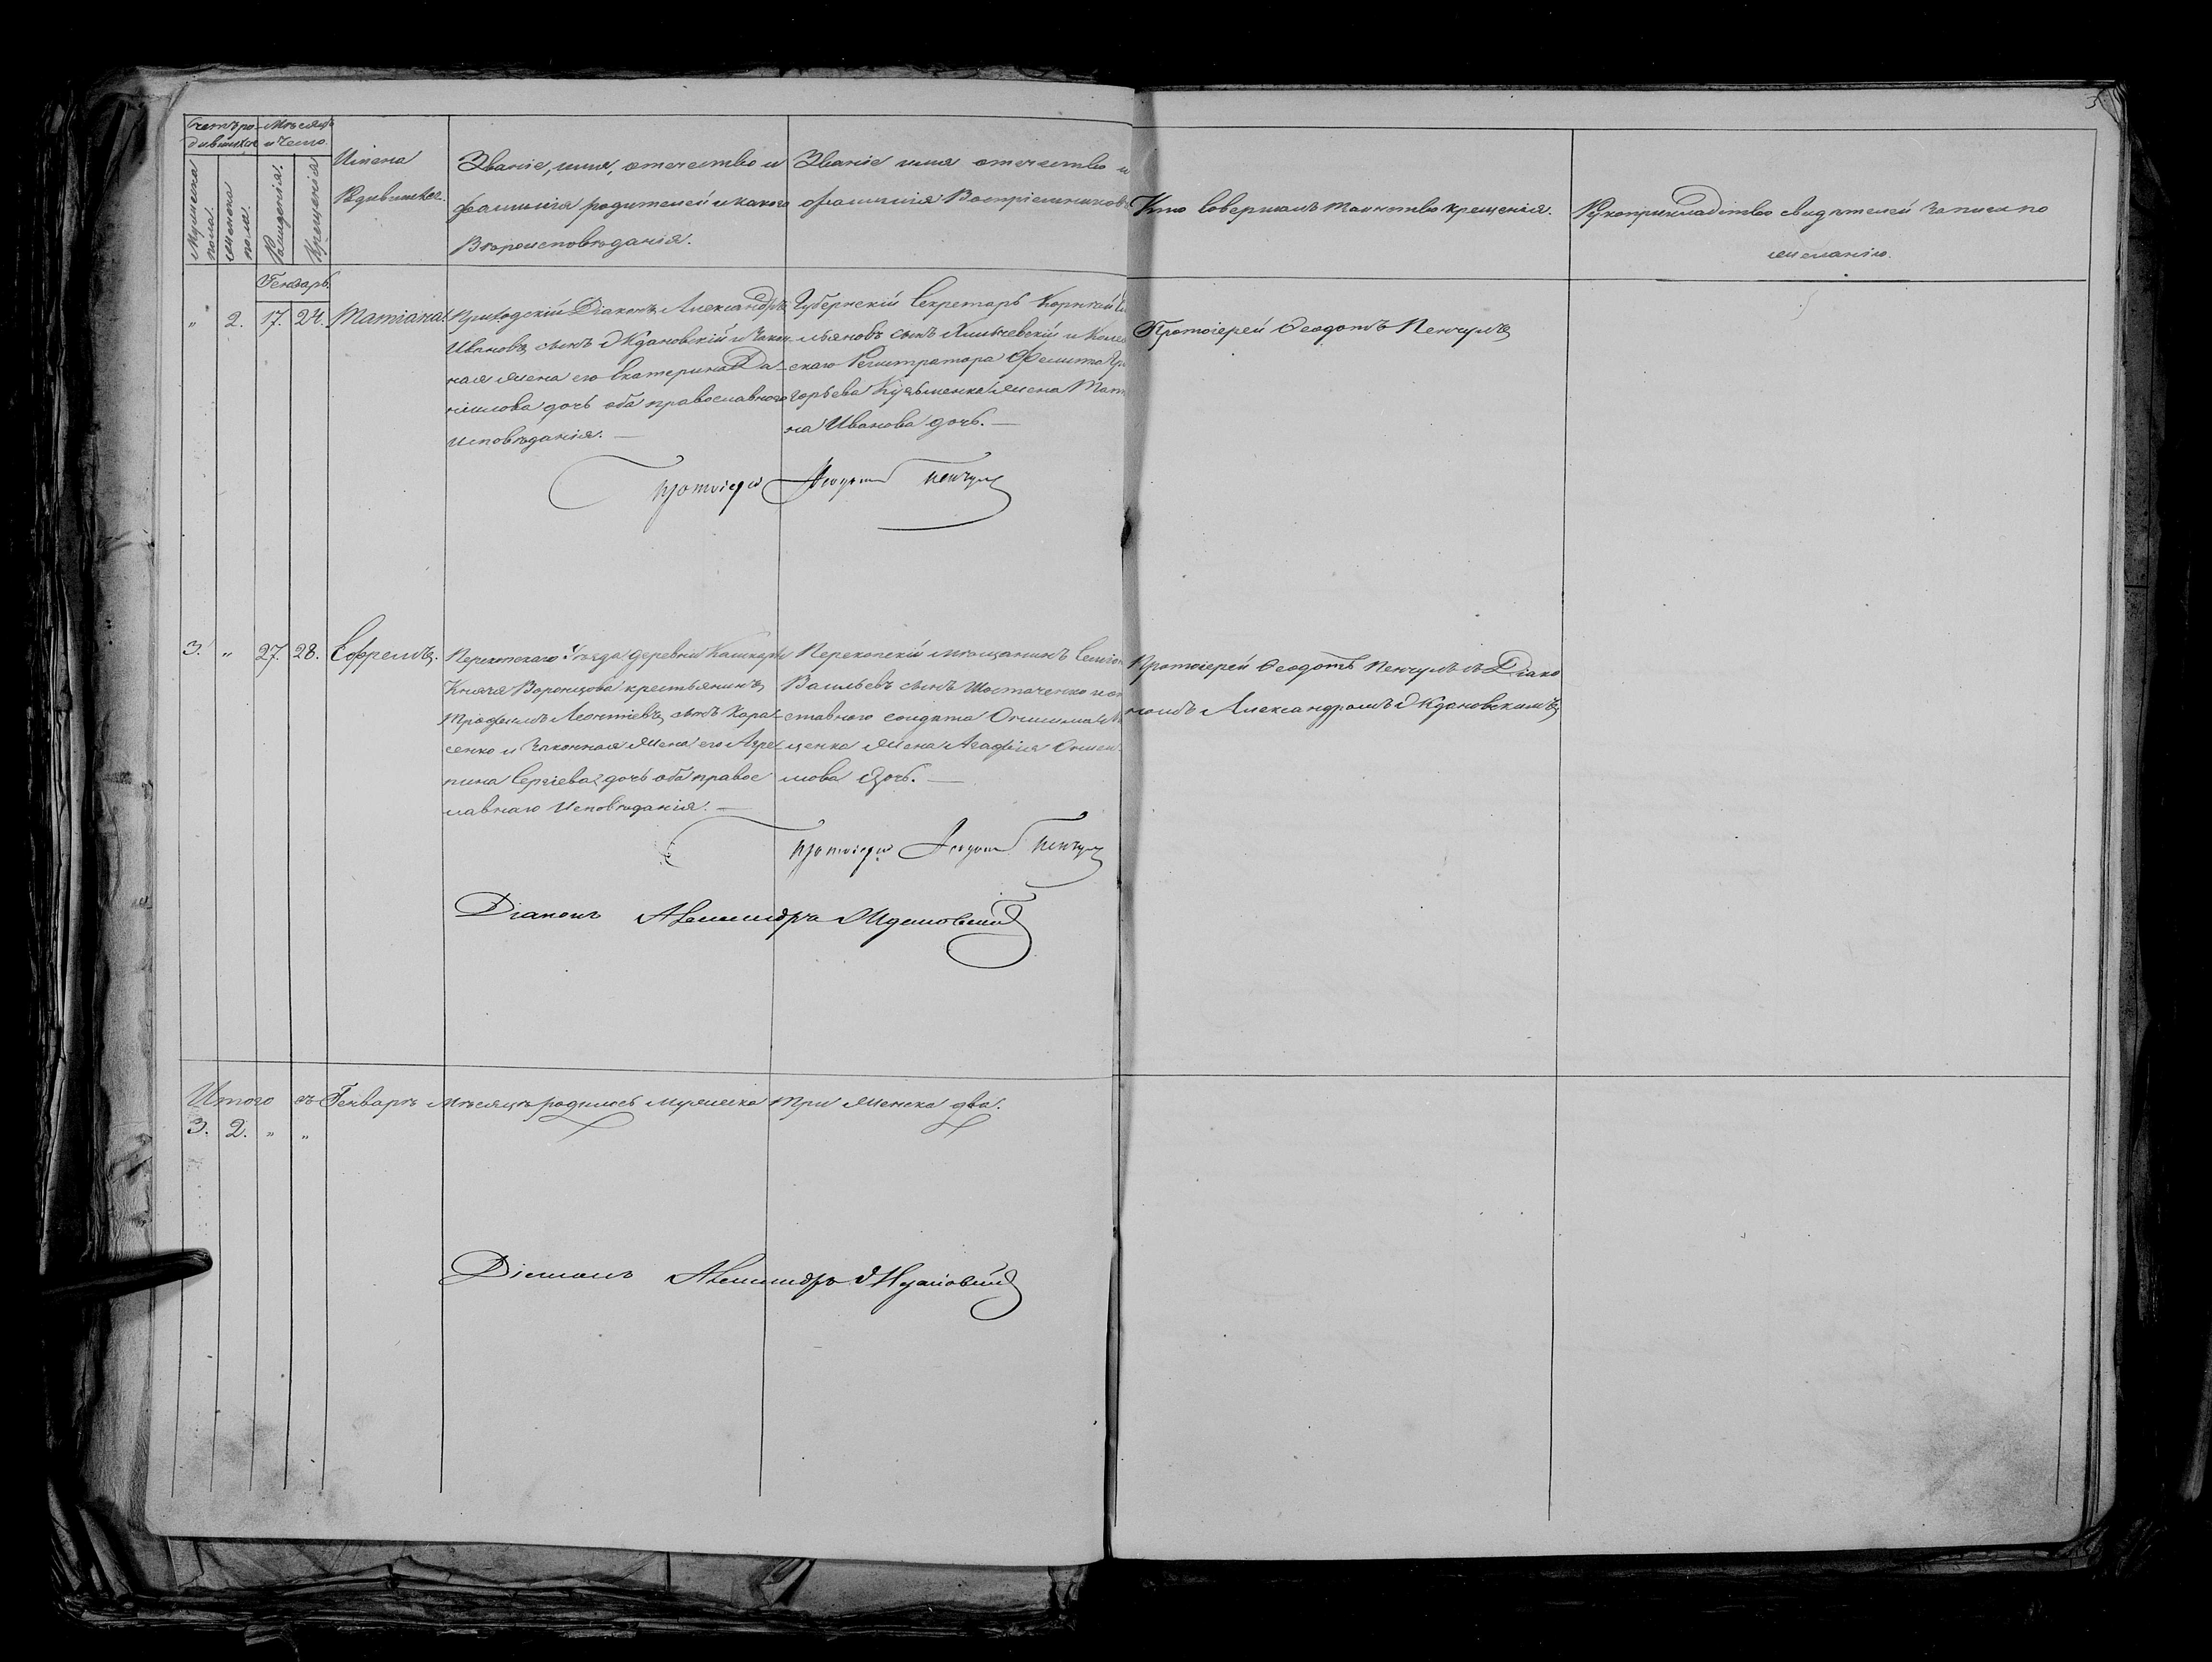 5
Счетъ ро-
дившихся
Мѣсяцъ
и Число.
Мужеска
пола.
Женска
пола.
Рожденія.
Крещенія
Имена
Родившихся.
Званіе, имя, отечество и
фамилія родителей и какого
Вѣроисповѣданія.
Званіе имя отечество и
фамилія Воспріемниковъ
Кто Совершалъ таинство крещенія.
Рукоприкладство свидѣтелей записи по
желанію.
Генварь.
" 2. 17. 24. Татіана.
Приходскій Діаконъ Александръ
Ивановъ сынъ Ждановскій и Закон-
ная жена его Екатерина Да-
нилова дочь оба православного
Исповѣданія. —
Губернскій Секретарь Корнилій
льяновъ сынъ Хмылевскій и Колеж
скаго Регистратора Филипа Гри
горьева Кузьменка жена Татіа
на Иванова дочь. —
Протоіерей Феодотъ Пенчулъ
Протоіерей Феодотъ Пенчулъ
3. " 27. 28. Ефремъ.
Перекопскаго Уѣзда деревни Кашкары
Князя Воронцова крестьянинъ
Трофимъ Леонтіевъ сынъ Хара-
сенко и Законная жена его Агре-
пина Сергіева дочь оба правос
лавнаго Исповѣданія. —
Перекопскій мѣщанинъ Семіон
Васильевъ сынъ Шостаченко и от
ставного солдата Онисима
ценка жена Агафія Ониси-
мова Дочь. —
Протоіерей Феодотъ Пенчулъ съ Діако
номъ Александромъ Ждановскимъ
Протоіерей Феодотъ Пенчулъ
Діаконъ Александръ Ждановскій
Итого въ Генварѣ мѣсяцѣ родилось мужеска три женска два.
3. 2. " "
Діаконъ Александръ Ждановскій